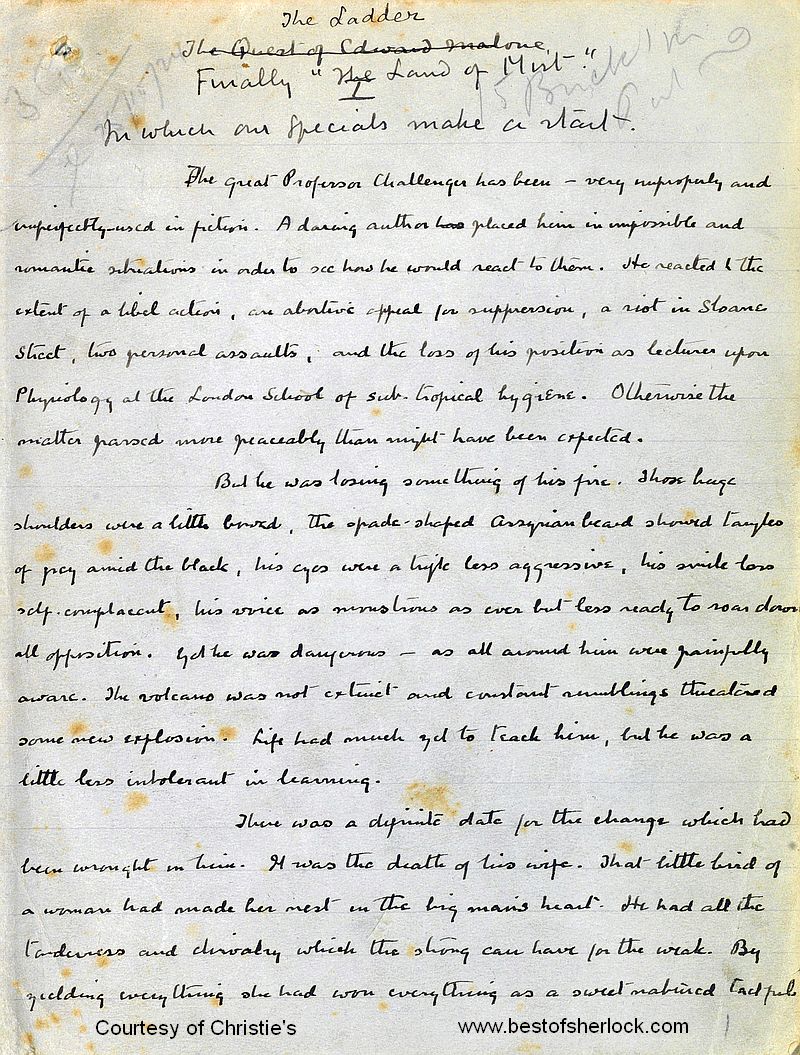 The Ladder
The Quest of Edward Malone
Finally "The Land of Mist."
I
In which our Specials make a start.
The great Professor Challenger has been – very improperly and
imperfectly – used in fiction. A daring author has placed him in impossible and
romantic situations in order to see how he would react to them. He reacted to the
extent of a libel action, an abortive appeal for suppression, a riot in Sloane
Street, two personal assaults, and the loss of his position as lecturer upon
Physiology at the London School of sub-tropical hygiene. Otherwise the
matter passed more peaceably than might have been expected.
But he was losing something of his fire. Those huge
shoulders were a little bowed, the spade-shaped Assyrian beard showed tangles
of grey amid the black, his eyes were a trifle less aggressive, his smile less
self-complacent, his voice as monstrous as ever but less ready to roar down
all opposition. Yet he was dangerous – as all around him were painfully
aware. The volcano was not extinct and constant rumblings threatened
some new explosion. Life had much yet to teach him, but he was a
little less intolerant in learning.
There was a definite date for the change which had
been wrought in him. It was the death of his wife. That little bird of
a woman had made her nest in the big man's heart. He had all the
tenderness and chivalry which the strong can have for the weak. By
yielding everything she had won everything as a sweet natured tactful
Courtesy of Christie's www.bestofsherlock.com